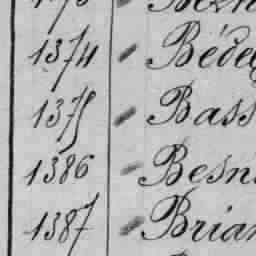 1374 〃 Béde
1375 〃 Bass
1386 〃 Besn
1387 〃 Brian